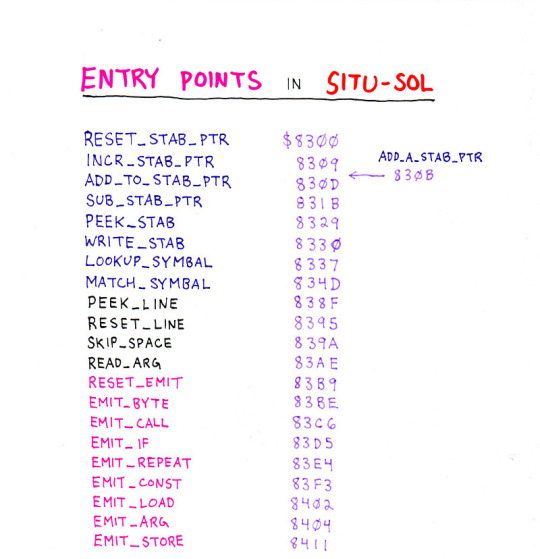 ENTRY POINTS IN SITU-SOL
RESET_STAB_PTR $8300
INCR_STAB_PTR 8309 ADD_A_STAB_PTR
ADD_TO_STAB_PTR 830D ← 830B
SUB_STAB_PTR 831B
PEEK_STAB 8329
WRITE_STAB 8330
LOOKUP_SYMBAL 8337
MATCH_SYMBAL 834D
PEEK_LINE 838F
RESET_LINE 8395
SKIP_SPACE 839A
READ_ARG 83AE
RESET_EMIT 83B9
EMIT_BYTE 83BE
EMIT_CALL 83C6
EMIT_IF 83D5
EMIT_REPEAT 83E4
EMIT_CONST 83F3
EMIT_LOAD 8402
EMIT_ARG 8404
EMIT_STORE 8411